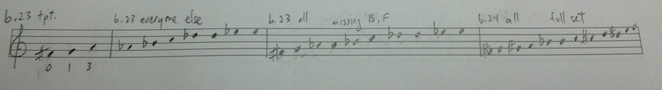 6.23 tpt. 6.23 everyone else 6.23 all missing B, F 6.24 all full set
0 1 3